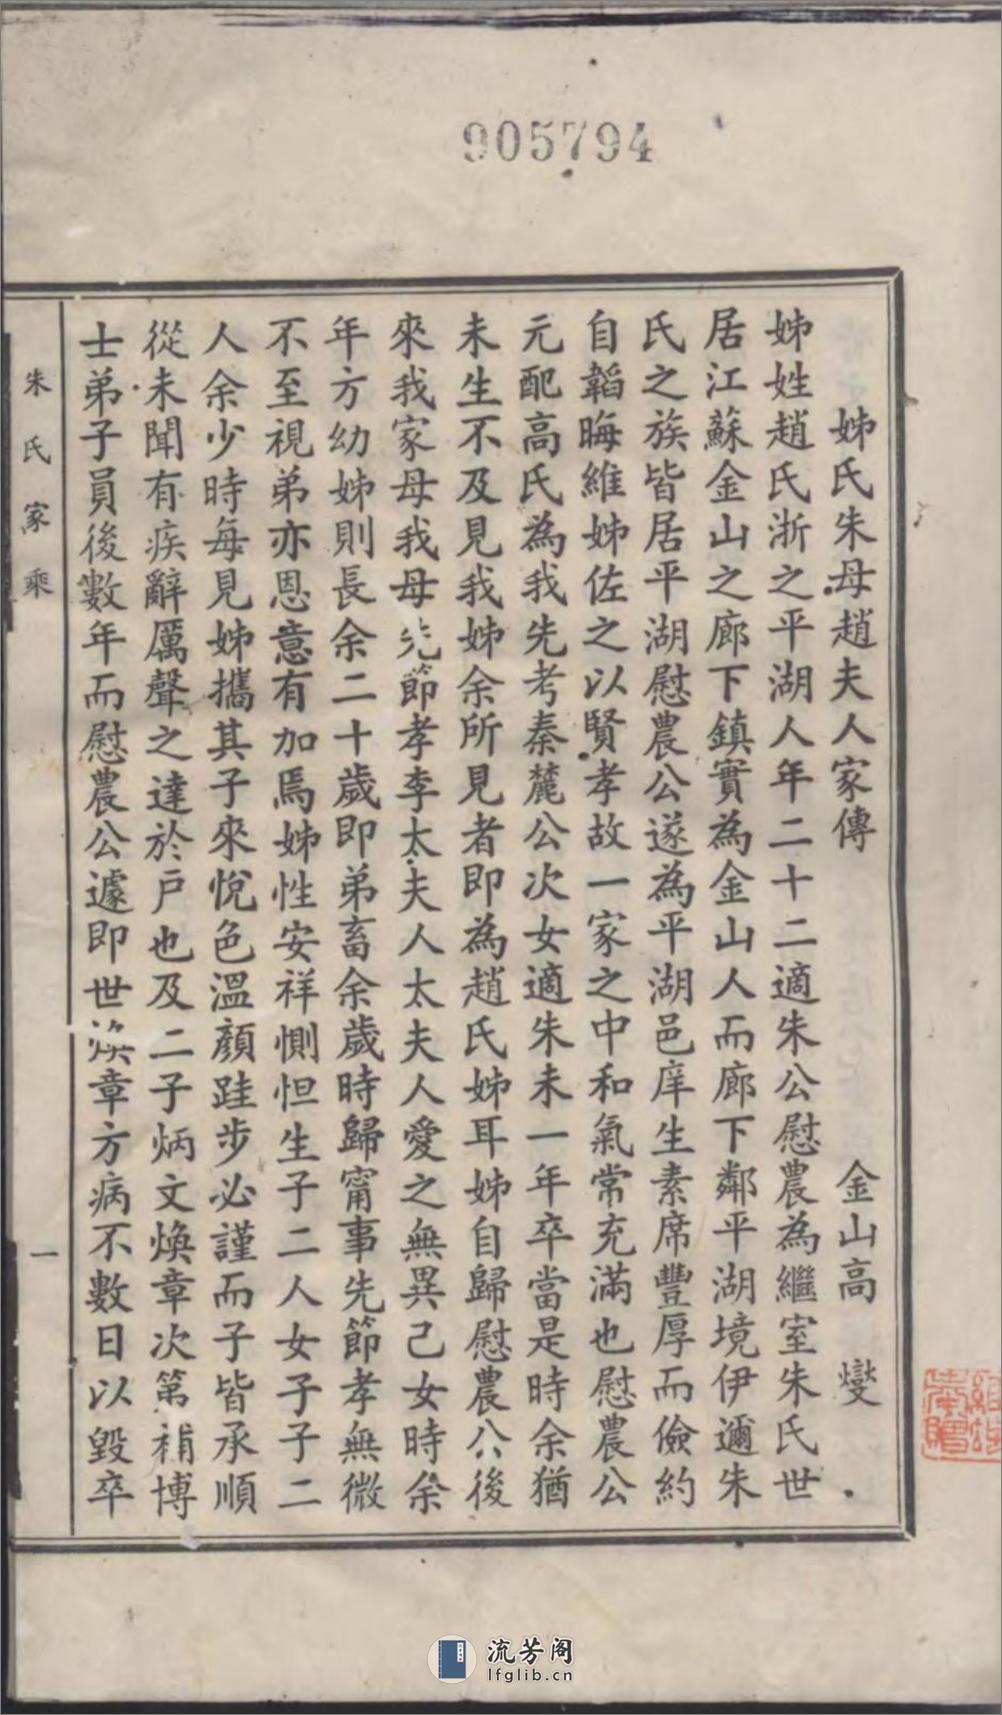 905794
姊氏朱母趙夫人家傳
金山高 燮
姊姓趙氏浙之平湖人年二十二適朱公慰農為繼室朱氏世
居江蘇金山之廊下鎮實為金山人而廊下鄰平湖境伊邇朱
氏之族皆居平湖慰農公遂為平湖邑庠生素席豐厚而儉約
自韜晦維姊佐之以賢孝故一家之中和氣常充滿也慰農公
元配高氏為我先考秦麓公次女適朱未一年卒當是時余猶
未生不及見我姊余所見者即為趙氏姊耳姊自歸慰農公後
來我家母我母先節孝李太夫人太夫人愛之無異己女時余
年方幼姊則長余二十歲即弟畜余歲時歸甯事先節孝無微
不至視弟亦恩意有加焉姊性安祥惻怛生子二人女子子二
人余少時每見姊攜其子來悅色溫顏跬步必謹而子皆承順
從未聞有疾辭厲聲之達於戶也及二子炳文煥章次第補博
士弟子員後數年而慰農公遽即世煥章方病不數日以毀卒
朱氏家乘
一
流芳阁
lfglib.cn